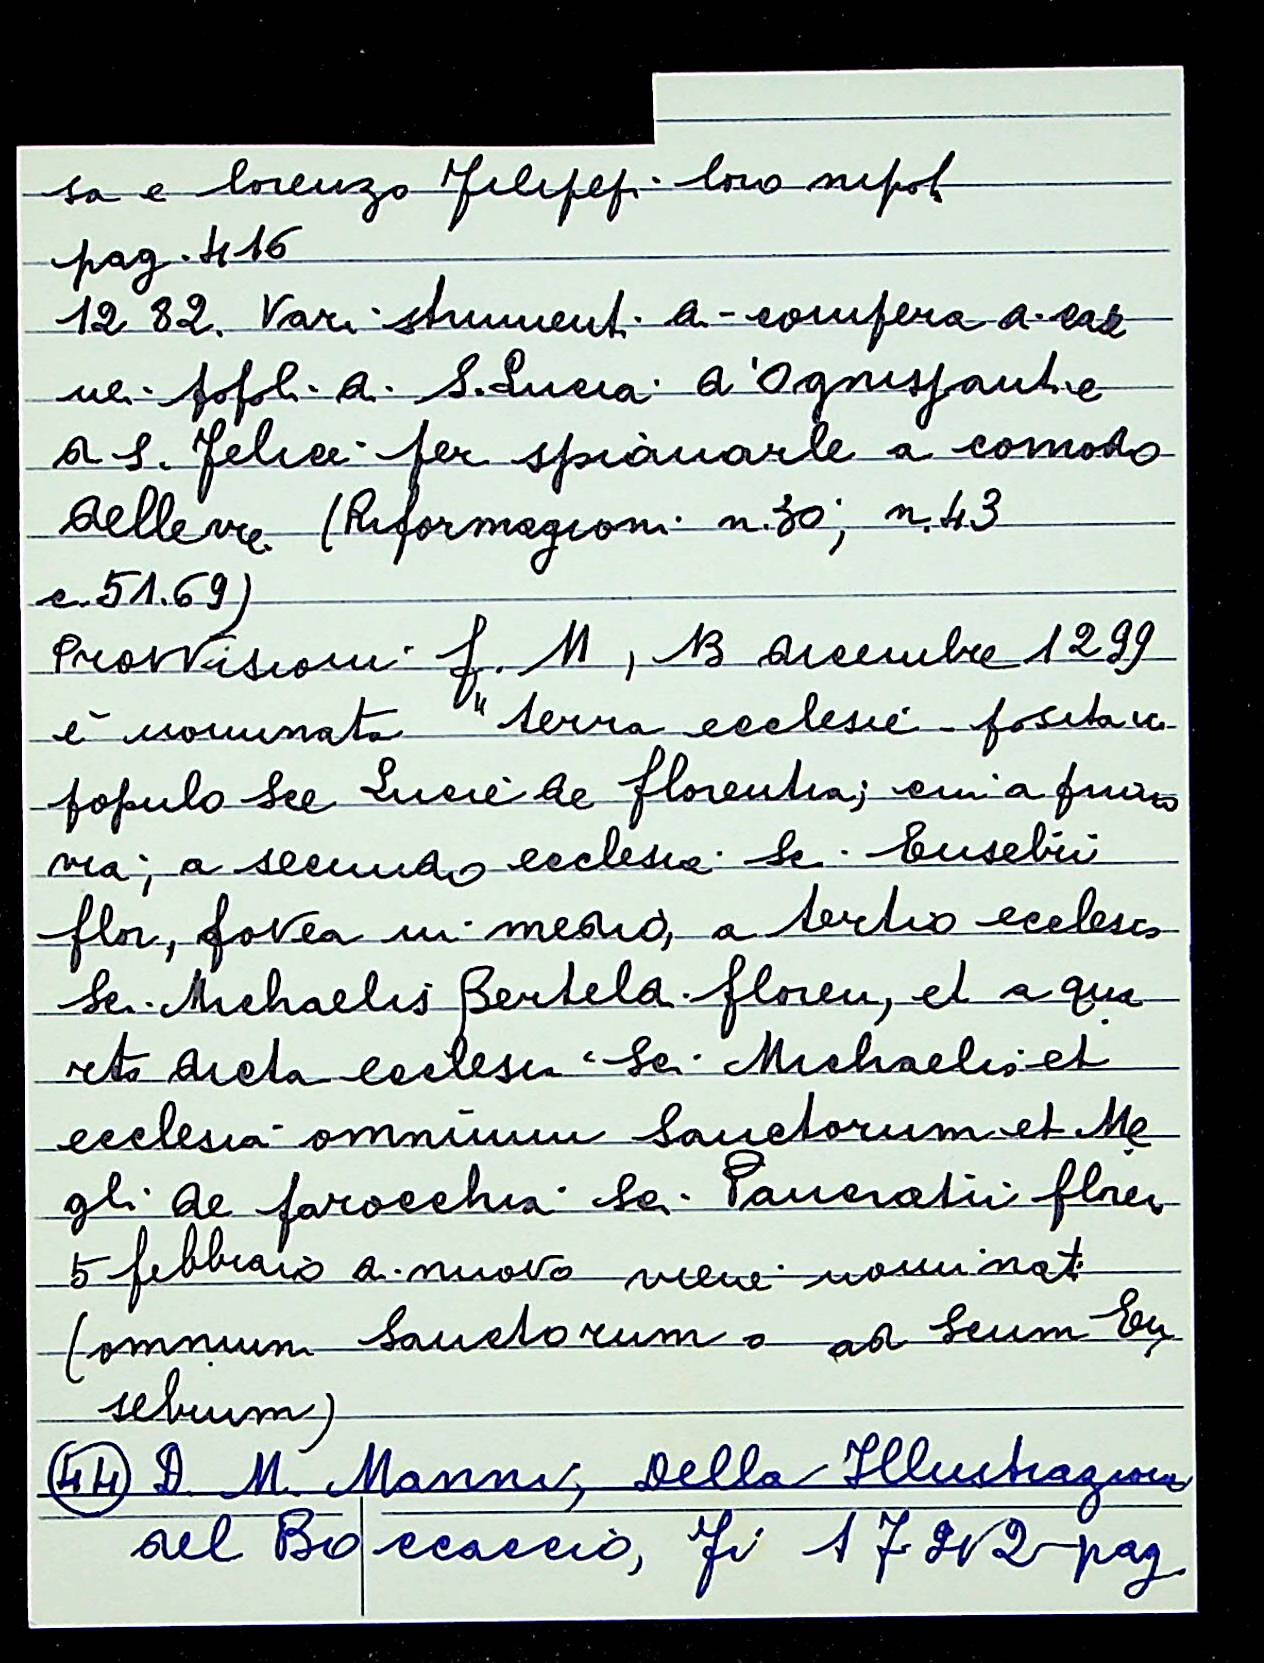 sa e Lorenzo Filipepi loro nipoti
pag. 416
1282. Vari strumenti di compera di case
nei popoli di S. Lucia d'Ognissanti e
di S. Felice per spianarle a comodo
delle vie (Riformagioni n. 30; n. 43
c. 51.69)
Provvisioni f. M, 13 dicembre 1299
è nominata "terra ecclesie posita in
populo Sce Lucie de Florentia; cui a primo
via; a secundo ecclesia Sci Eusebii
flor, fovea in medio, a tertio ecclesia
Sci Michaelis Berteldi floren, et a qua
rto dicta ecclesia Sci Michaelis et
ecclesia omnium Sanctorum et Me
gli de parocchia Sci Pancratii floren
5 febbraio di nuovo viene nominat
(omnium Sanctorum o ad Scum Eu
sebium)
(44) D. M. Manni, Della Illustrazione
del Boccaccio, Fi pag.